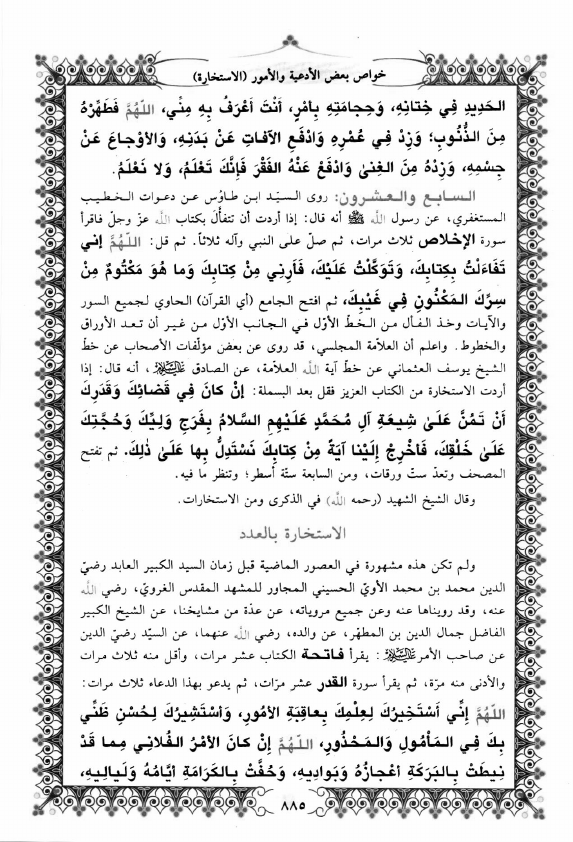 خواص بعض الأدعية والأمور (الاستخارة)
الحَدِيدِ فِي خِتانِهِ، وَحِجامَتِهِ بِأمْرٍ، أنْتَ أعْرَفُ بِهِ مِنِّي، اللهُمَّ فَطَهِّرْهُ
مِنَ الذُّنُوبِ؛ وَزِدْ فِي عُمْرِهِ وَادْفَعِ الآفاتِ عَنْ بَدَنِهِ، وَالأوْجاعَ عَنْ
جِسْمِهِ، وَزِدْهُ مِنَ الغِنىٰ وَادْفَعْ عَنْهُ الفَقْرَ فَإنَّكَ تَعْلَمُ، وَلا نَعْلَمُ.
السابع والعشرون: روى السيّد ابن طاوُس عن دعوات الخطيب
المستغفري، عن رسول الله ﷺ أنه قال: إذا أردت أن تتفأّل بكتاب الله عزّ وجلّ فاقرأ
سورة الإخلاص ثلاث مرات، ثم صلّ على النبي وآله ثلاثاً. ثم قل: اللهُمَّ إني
تَفَاءَلْتُ بِكِتابِكَ، وَتَوَكَّلْتُ عَلَيْكَ، فَأرِنِي مِنْ كِتابِكَ وَما هُوَ مَكْتُومٌ مِنْ
سِرِّكَ المَكْنُونِ فِي غَيْبِكَ، ثم افتح الجامع (أي القرآن) الحاوي لجميع السور
والآيات وخذ الفأل من الخطّ الأوّل في الجانب الأوّل من غير أن تعد الأوراق
والخطوط. واعلم أن العلاّمة المجلسي، قد روى عن بعض مؤلّفات الأصحاب عن خطّ
الشيخ يوسف العثماني عن خطّ آية الله العلاّمة، عن الصادق عليه السلام، أنه قال: إذا
أردت الاستخارة من الكتاب العزيز فقل بعد البسملة: إنْ كانَ فِي قَضائِكَ وَقَدَرِكَ
أنْ تَمُنَّ عَلىٰ شِيعَةِ آلِ مُحَمَّدٍ عَلَيْهِمِ السَّلامُ بِفَرَجِ وَلِيِّكَ وَحُجَّتِكَ
عَلىٰ خَلْقِكَ، فَاخْرِجْ إلَيْنا آيَةً مِنْ كِتابِكَ نَسْتَدِلُّ بِها عَلَىٰ ذٰلِكَ. ثم تفتح
المصحف وتعدّ ستّ ورقات، ومن السابعة ستّة أسطر؛ وتنظر ما فيه.
وقال الشيخ الشهيد (رحمه الله) في الذكرى ومن الاستخارات.
الاستخارة بالعدد
ولم تكن هذه مشهورة في العصور الماضية قبل زمان السيد الكبير العابد رضيّ
الدين محمد بن محمد الآويّ الحسيني المجاور للمشهد المقدس الغرويّ، رضي الله
عنه، وقد رويناها عنه وعن جميع مروياته، عن عدّة من مشايخنا، عن الشيخ الكبير
الفاضل جمال الدين بن المطهّر، عن والده، رضي الله عنهما، عن السيّد رضيّ الدين
عن صاحب الأمر عليه السلام: يقرأ فاتحة الكتاب عشر مرات، وأقل منه ثلاث مرات
والأدنى منه مرّة، ثم يقرأ سورة القدر عشر مرّات، ثم يدعو بهذا الدعاء ثلاث مرات:
اللهُمَّ إنِّي أسْتَخِيرُكَ لِعِلْمِكَ بِعاقِبَةِ الأمُورِ، وَأسْتَشِيرُكَ لِحُسْنِ ظَنِّي
بِكَ فِي المَأْمُولِ وَالمَحْذُورِ، اللهُمَّ إنْ كانَ الأمْرُ الفُلانِي مِما قَدْ
نِيطَتْ بِالبَرَكَةِ أعْجازُهُ وَبَوادِيهِ، وَحُفَّتْ بِالكَرامَةِ أيّامُهُ وَلَيالِيهِ،
٨٨٥